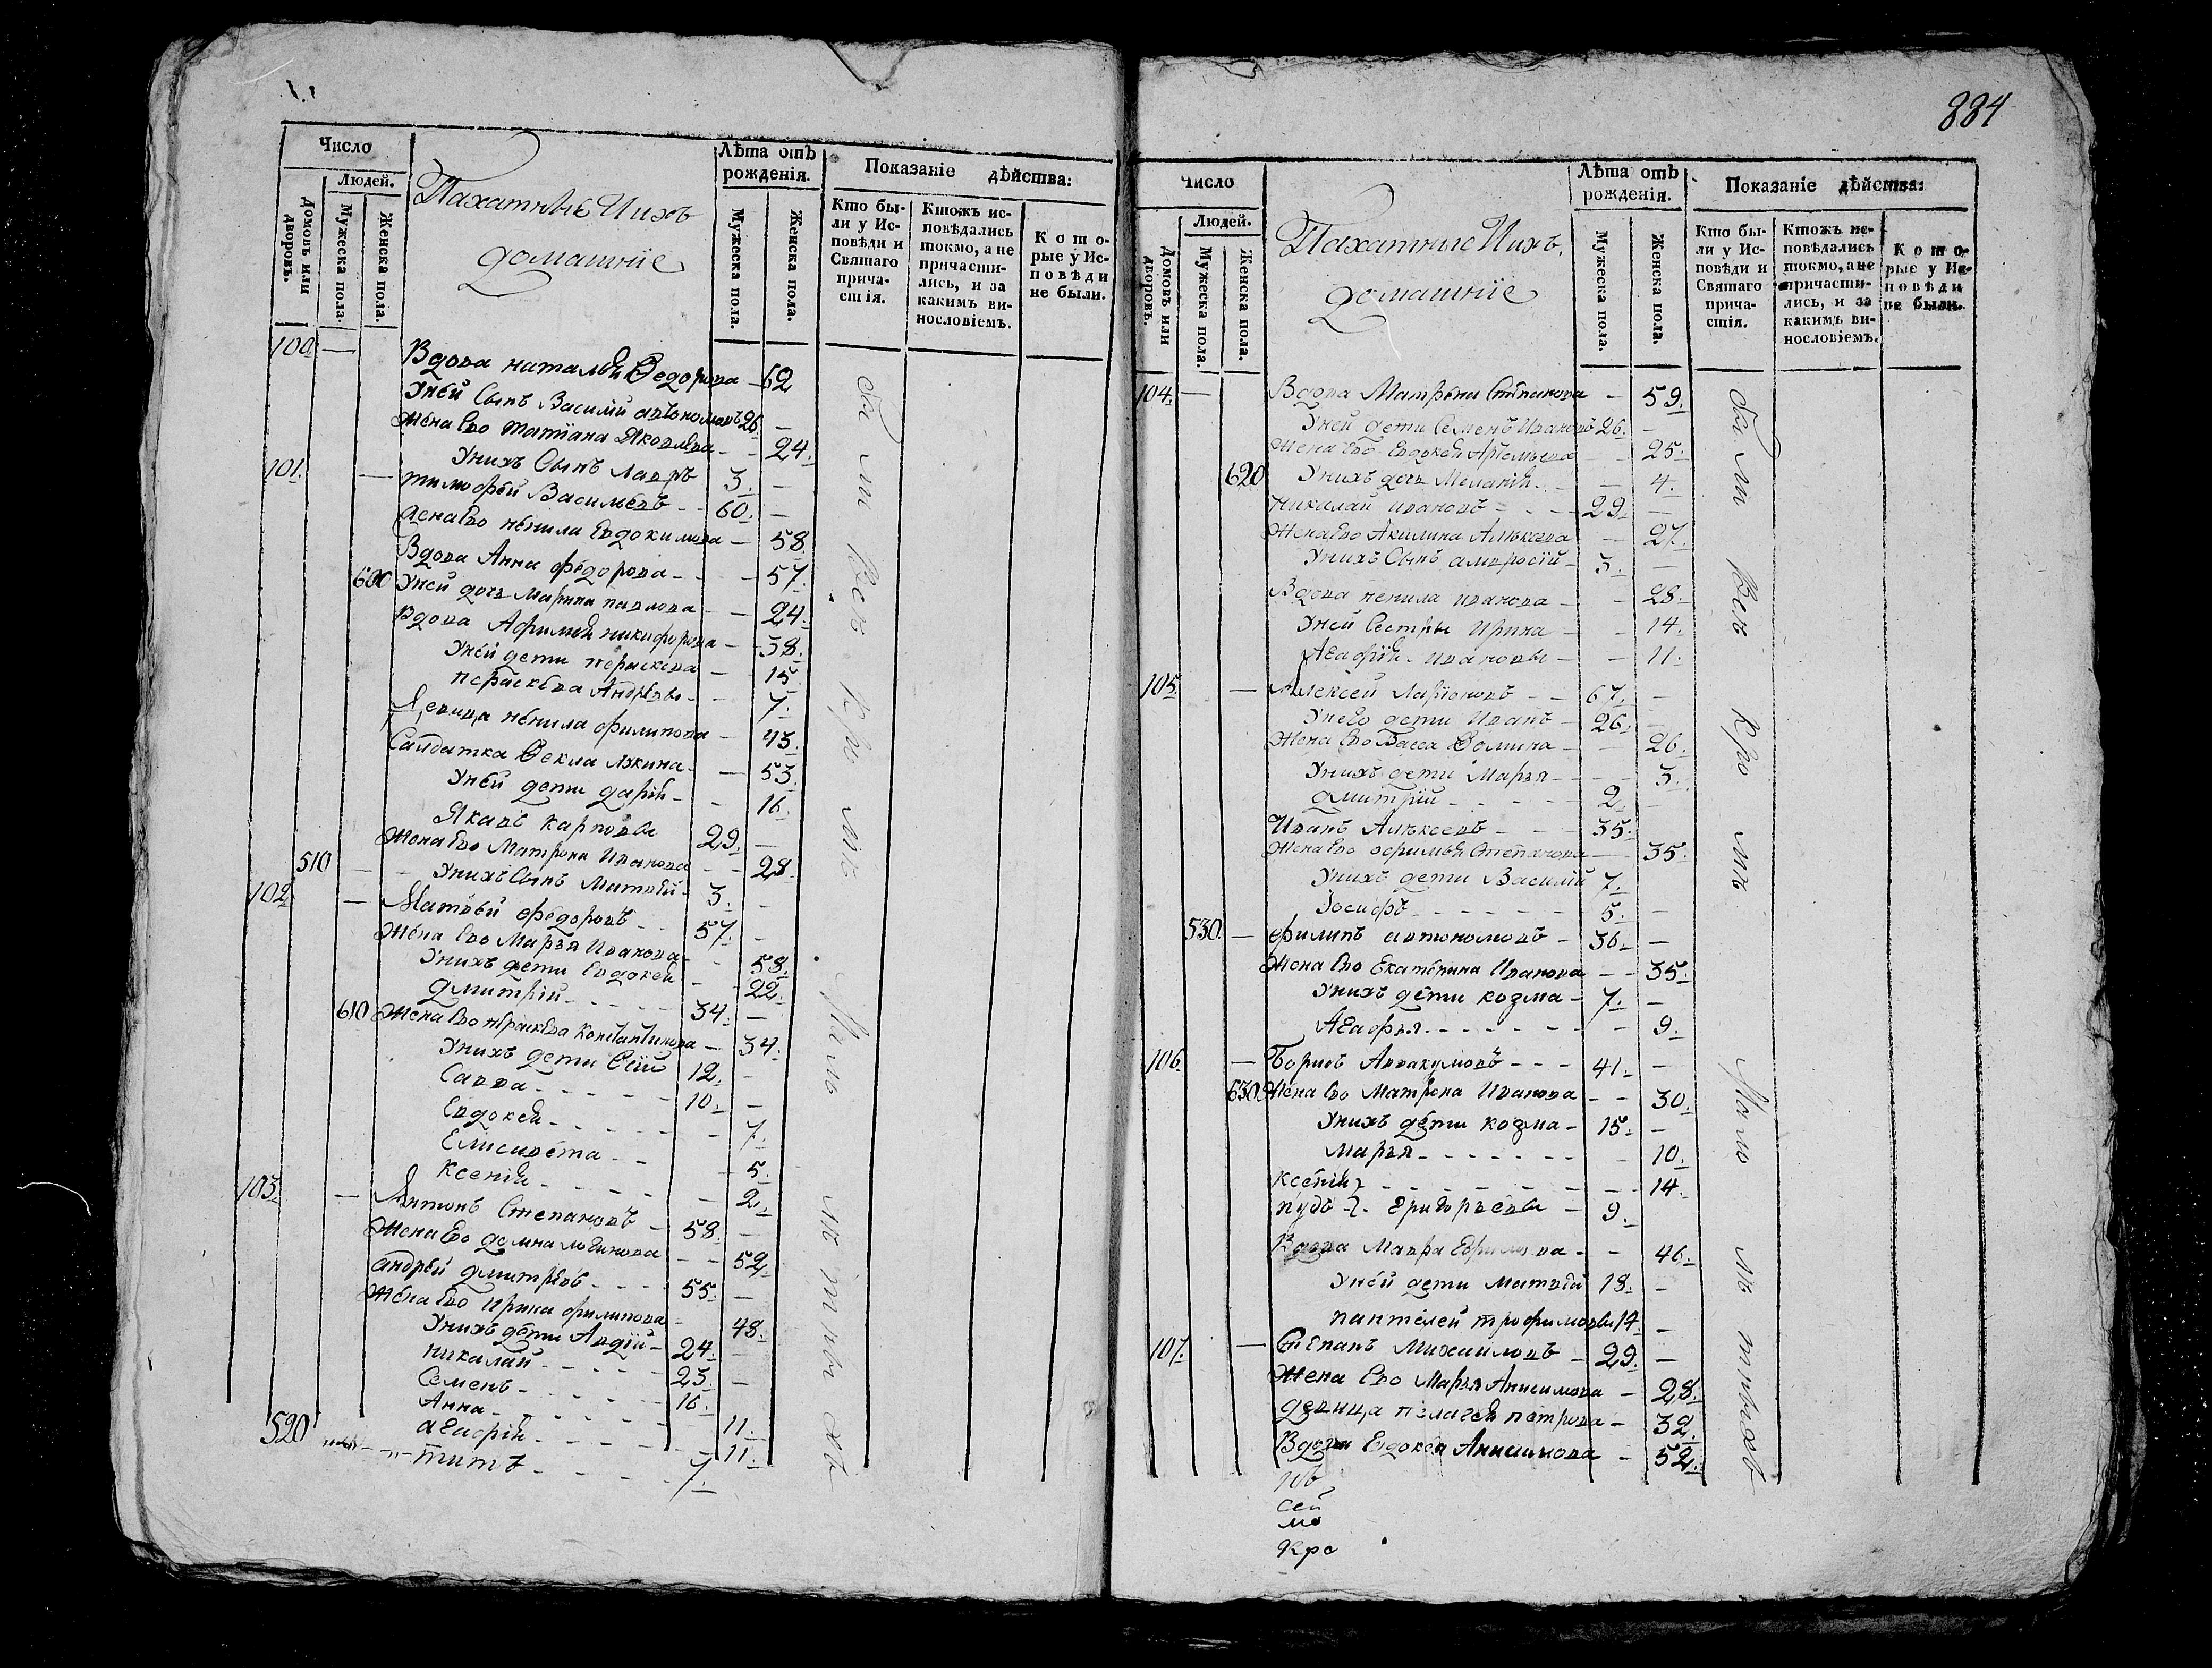 884
Число
Людей.
Домовъ или дворовъ.
Мужеска пола.
Женска пола.
Пахатные Иихъ
домашніе
Лѣта отъ рожденія.
Мужеска пола.
Женска пола.
Показаніе дѣйства:
Кто бы-
ли у Ис-
повѣди и
Святаго
прича-
стія.
Ктожъ ис-
повѣдались
токмо, а не
причасти-
лись, и за
какимъ ви-
нословіемъ.
Кото-
рые у Ис-
повѣди
не были.
100. — Вдова наталья Ѳедорова — 62
Уней Сынъ Василій автономовъ 26. —
Жена Ево татіана Яковлева — 24.
Унихъ Сынъ Лавръ 3. —
101. — тимофей Васильевъ 60. —
Жена Ево ненила Евдокимова — 58.
Вдова Анна федорова — 57.
600 Уней дочь Марина павлова — 24.
Вдова Афимья никифорова — 38.
Уней дети параскева — 15
параскева Андреевы — 7.
Девица ненила филипова — 43.
Салдатка Ѳекла лукина — 53.
Уней дети дарія — 16.
Яковъ карповы 29. —
Жена Ево Матрона Иванова — 28.
510 — Унихъ Сынъ Матвей 3. —
102. — Матвей федоровъ 57. —
Жена Ево Марья Иванова — 58.
Унихъ дети Евдокея — 22.
дмитрій 34. —
610 Жена Ево параскева Константинова — 34.
Унихъ дети 12. —
Савва 10. —
Евдокея — 7.
Елисавета — 5.
Ксенія — 2.
103. — Антонъ Степановъ 58. —
Жена Ево домна логинова — 52.
андрей дмитревъ 55. —
Жена Ево Ирина филипова — 48.
Унихъ дети Авдій 24. —
николай 23. —
Семенъ 16.
Анна 11.
агафія 11.
520 титъ 7.
бы ли Всѣ Кро мѣ Мало лѣ тны хъ
Число
Людей.
Домовъ или дворовъ.
Мужеска пола.
Женска пола.
Пахатные Иихъ
домашніе
Лѣта отъ рожденія.
Мужеска пола.
Женска пола.
Показаніе дѣйства:
Кто бы-
ли у Ис-
повѣди и
Святаго
прича-
стія.
Ктожъ ис-
повѣдались
токмо, а не
причасти-
лись, и за
какимъ ви-
нословіемъ.
Кото-
рые у Ис-
повѣди
не были.
104. — Вдова Матрена Степанова — 59.
Уней дети Семенъ Ивановъ 26. —
Жена Ево Евдокея Артемьева — 25.
620 Унихъ дочь Меланія — 4.
николай ивановъ 29. —
Жена Ево Акилина Алексеева — 27.
Унихъ Сынъ амвросій 3. —
Вдова ненила иванова — 28.
Уней Сестры Ирина — 14.
Агафія ивановы — 11.
105. — Алексей Ларіоновъ 67. —
Унего дети Иванъ 26. —
Жена Ево Васса Ѳомина — 26.
Унихъ дети Марья — 3.
дмитрій 2. —
Иванъ Алексеевъ 35.
Жена Ево Афимья Степанова — 35.
Унихъ дети Василій 7.
Іосифъ 5. —
530. — филипъ автономовъ 36. —
Жена Ево Екатерина Иванова — 35.
Унихъ дети козма 7. —
Агафья — 9.
106. — Борисъ Аввакумовъ 41. —
630. Жена Ево Матрона Иванова — 30.
Унихъ дети козма 15. —
Марья — 10.
ксенія — 14.
пудъ григорьевы 9.
Вдова Мавра Ефимова — 46.
Уней дети Матвей 18. —
пантелей трофимовы 14. —
107. — Степанъ Михаиловъ 29. —
Жена Ево Марья Анисимова — 28.
девица пелагея петрова — 32.
Вдова Евдокея Анисимова — 52.
сей
мо
кро
бы ли Всѣ Кро мѣ Мало лѣ тныхъ